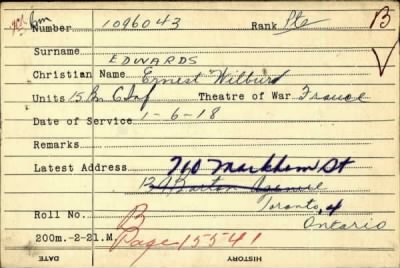 Number 1096043 Rank Pte B
Surname
EDWARDS
Christian Name Ernest Wilburd
Units 15 Bn C Inf Theatre of War France
Date of Service 1-6-18
Remarks
Latest Address 710 Markham St
Barton Avenue
Toronto, 4
Ontario
Roll No. B
200m.-2-21.M. Page 15541
HISTORY